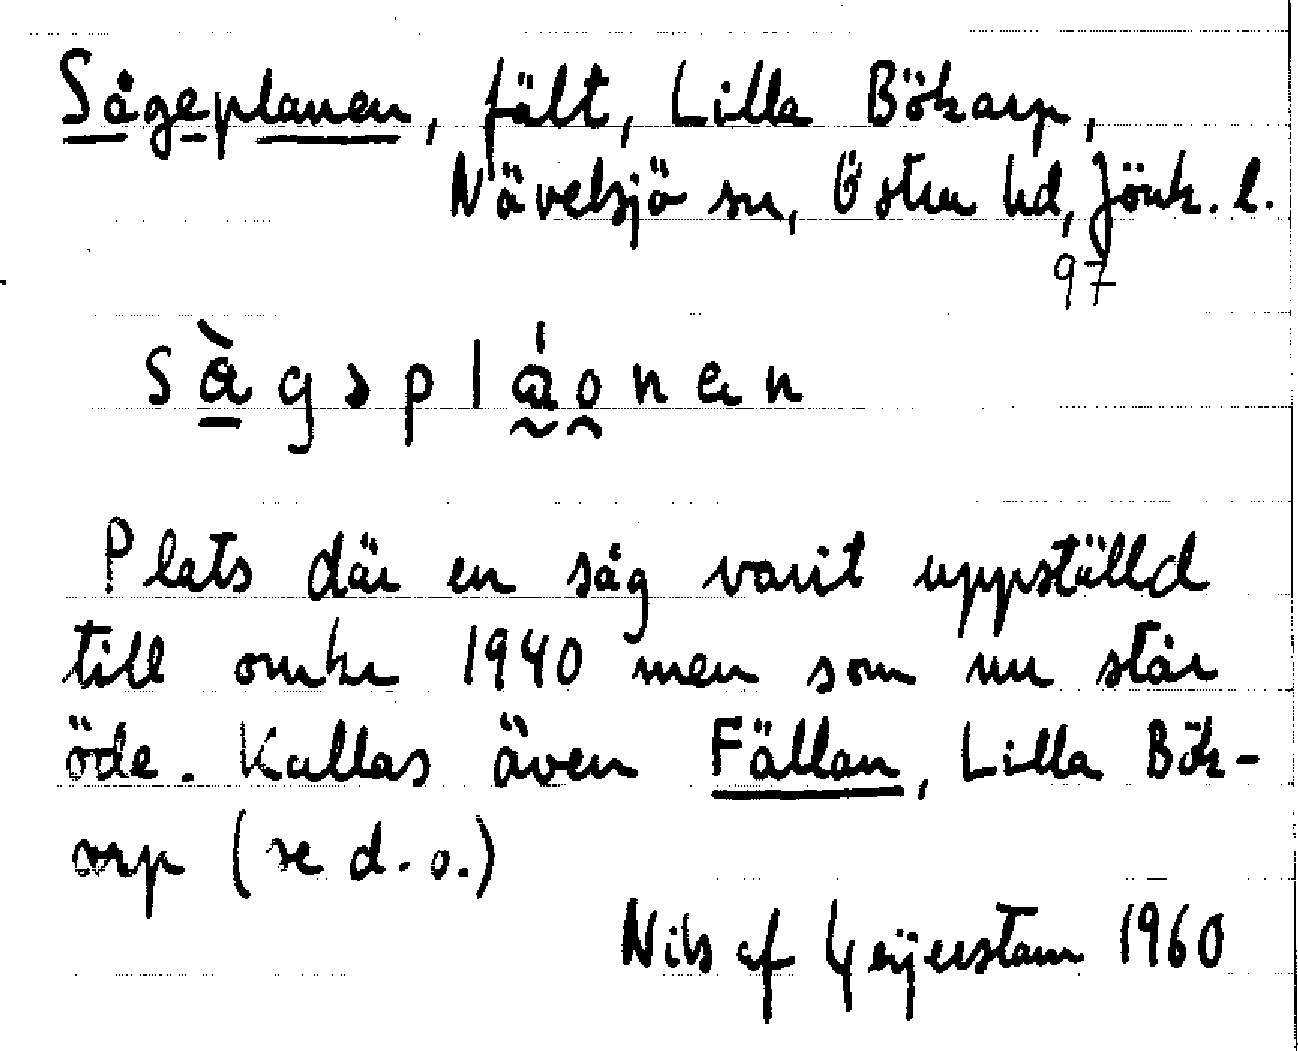 Sågeplanen, fält, Lilla Bökarp,
Nävelsjö sn, Östra hd, Jönk. l.
97
sàgsplaonen
Plats där en såg varit uppställd
till omkr 1940 men som nu står
öde. Kallas även Fällan, Lilla Bök-
arp (se d.o.)
Nils af Geijerstam 1960